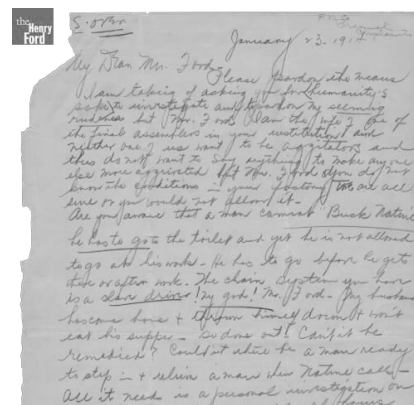 the
Henry
Ford
S. over
January 23. 1914
My Dear Mr. Ford - Please pardon the means
I am taking of asking you for humanity's
sake to investigate and to pardon my seeming
rudeness but Mr. Ford I am the wife of one of
the final assemblers in your institution and
neither one of us want to be agitators and
thus do not want to say anything to make any one
else more aggravated but Mr. Ford you do not
know the conditions in your factory we are all
sure or you would not allow it -
Are you aware that a man cannot "Buck Nature"
he has to go to the toilet and yet he is not allowed
to go at his work - He has to go before he gets
there or after work. The chain system you have
is a slave driver! My god! Mr. Ford - My husband
has come home & thrown himself down & won't
eat his supper - so done out! Can't it be
remedied? Couldn't there be a man ready
to step in & relieve a man when Nature calls -
All it needs is a personal investigation on